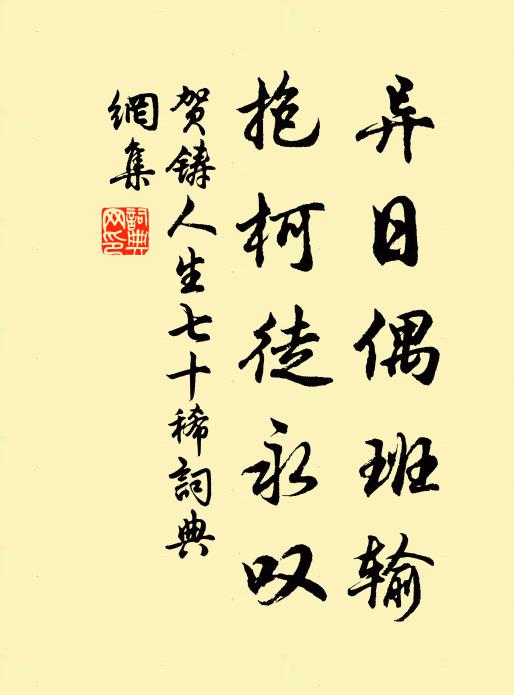 异日偶班输
抱柯徒永叹
贺铸人生七十稀詞典
網集
詞典
网印